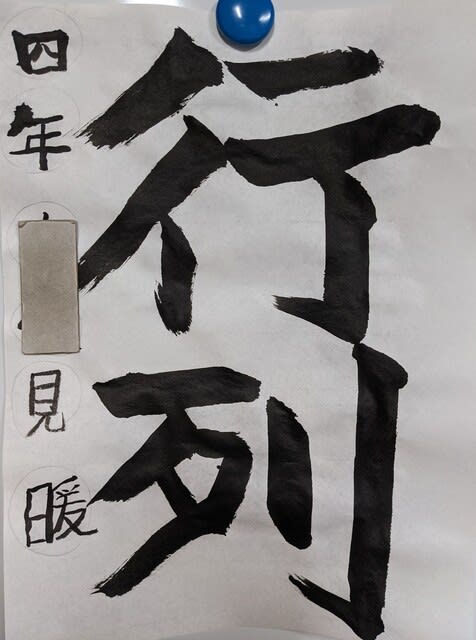 行列
四年 見暖